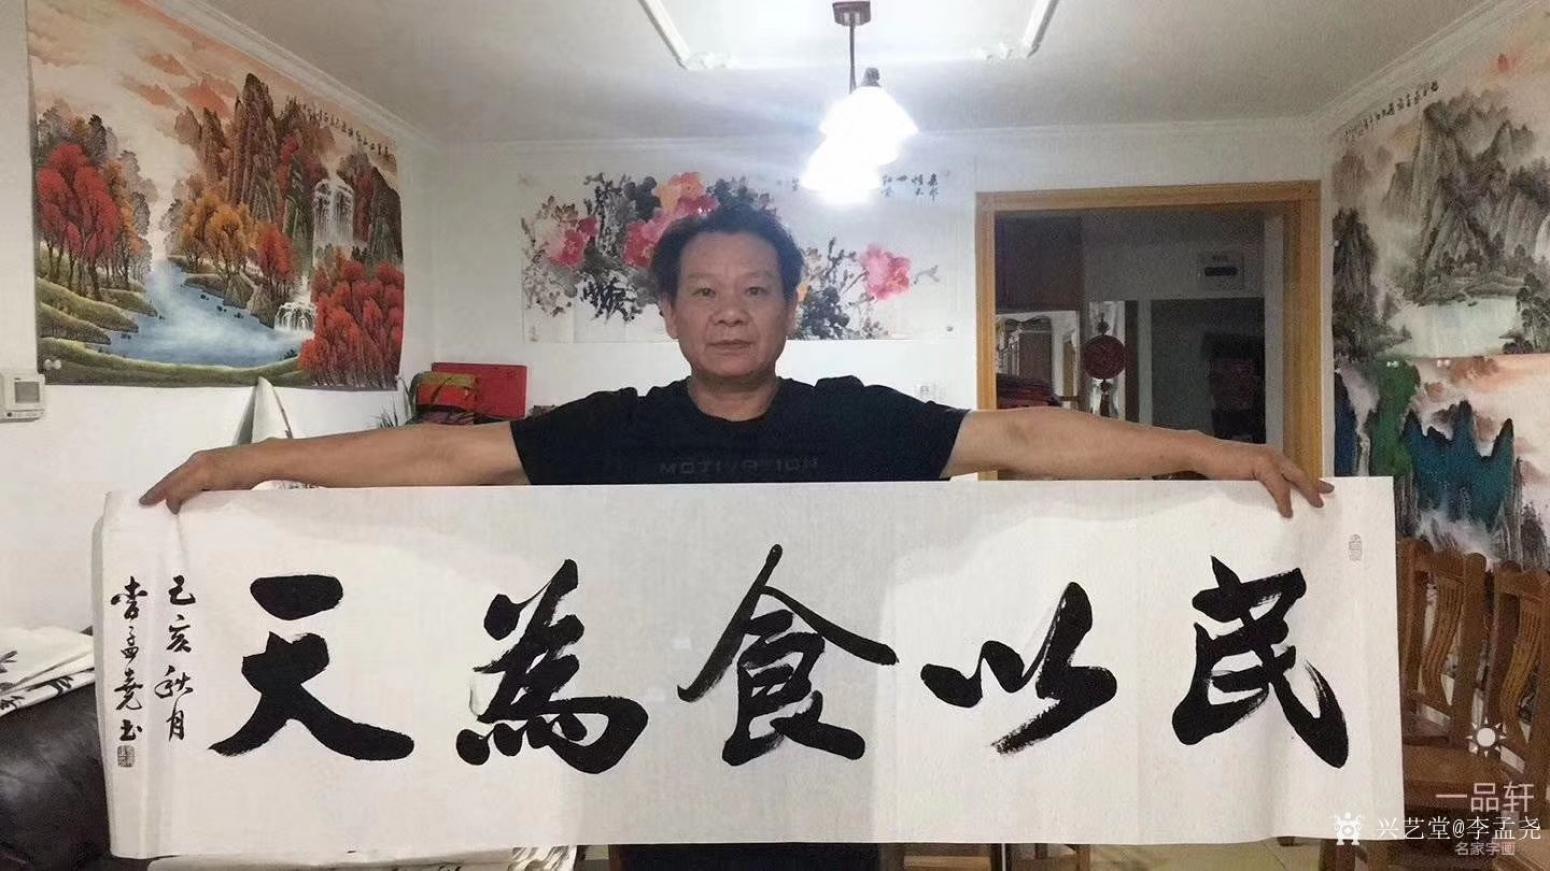 民以食為天
己亥秋月
李孟尧书
MOTIVATION
一品轩
兴艺堂@李孟尧
名家字画